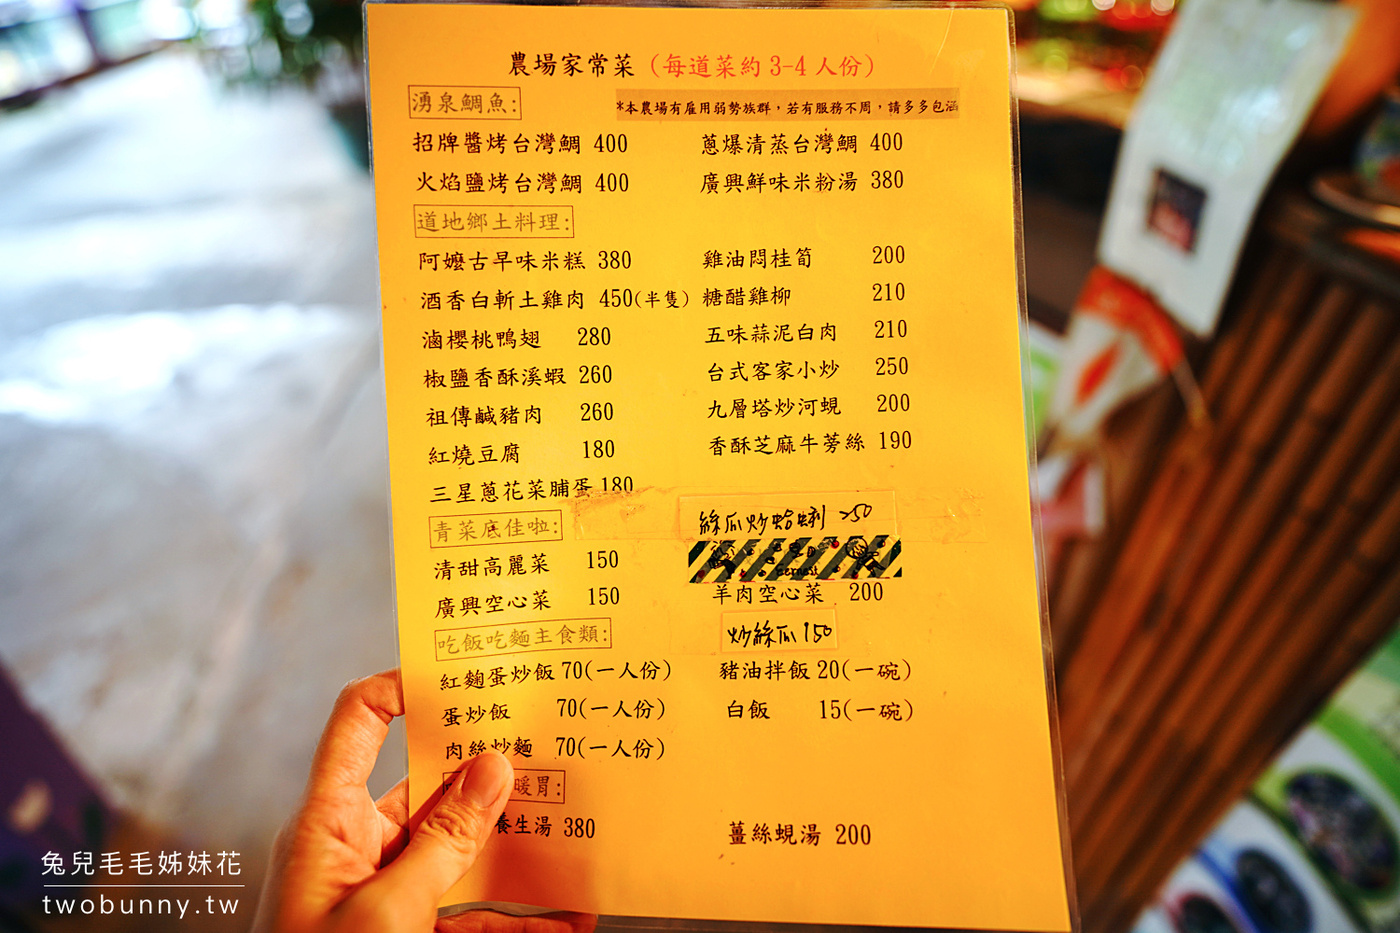 農場家常菜(每道菜約 3-4 人份)
湧泉鯛魚:
*本農場有雇用弱勢族群,若有服務不周,請多多包涵
招牌醬烤台灣鯛 400 蔥爆清蒸台灣鯛 400
火焰鹽烤台灣鯛 400 廣興鮮味米粉湯 380
道地鄉土料理:
阿嬤古早味米糕 380 雞油悶桂筍 200
酒香白斬土雞肉 450(半隻) 糖醋雞柳 210
滷櫻桃鴨翅 280 五味蒜泥白肉 210
椒鹽香酥溪蝦 260 台式客家小炒 250
祖傳鹹豬肉 260 九層塔炒河蜆 200
紅燒豆腐 180 香酥芝麻牛蒡絲 190
三星蔥花菜脯蛋 180
青菜底佳啦: 絲瓜炒蛤蜊 250
清甜高麗菜 150
廣興空心菜 150 羊肉空心菜 200
吃飯吃麵主食類: 炒絲瓜 150
紅麴蛋炒飯 70(一人份) 豬油拌飯 20(一碗)
蛋炒飯 70(一人份) 白飯 15(一碗)
肉絲炒麵 70(一人份)
暖胃:
養生湯 380 薑絲蜆湯 200
兔兒毛毛姊妹花
twobunny.tw